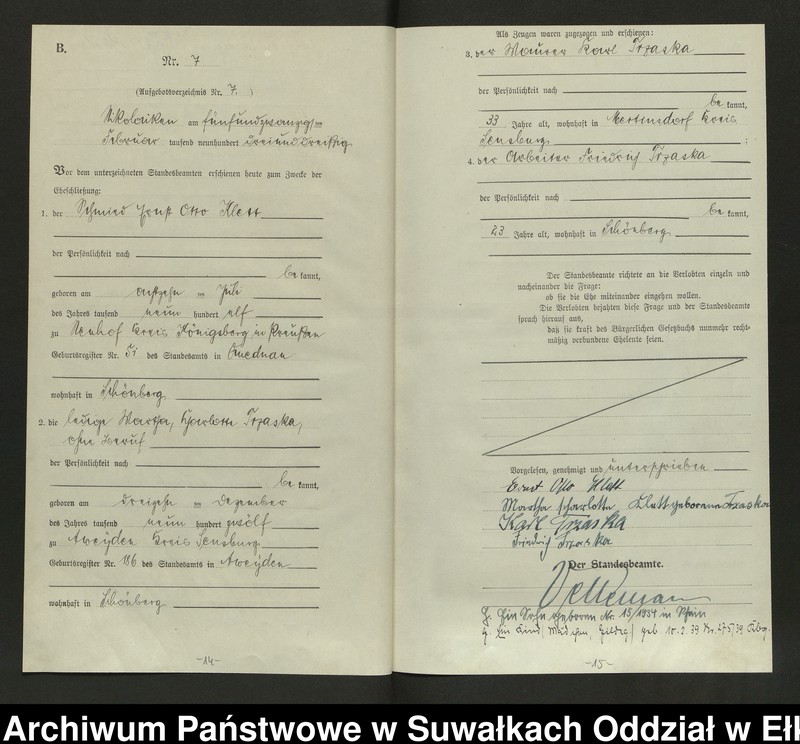 B.
Nr. 7
(Aufgebotsverzeichnis Nr. 7.)
Nikolaiken am fünfundzwanzigsten
Februar tausend neunhundert dreiunddreißig
Vor dem unterzeichneten Standesbeamten erschienen heute zum Zwecke der
Eheschließung:
1. der Schmied Ernst Otto Klett
der Persönlichkeit nach
be kannt,
geboren am achtzehn ten Juli
des Jahres tausend neun hundert elf
zu Neuhof Kreis Königsberg in Preußen
Geburtsregister Nr. 51 des Standesamts in Quednau
wohnhaft in Schönberg
2. die ledige Martha, Charlotte Trzaska,
ohne Beruf
der Persönlichkeit nach
be kannt,
geboren am dreizehn ten Dezember
des Jahres tausend neun hundert zwölf
zu Aweyden Kreis Sensburg
Geburtsregister Nr. 186 des Standesamts in Aweyden
wohnhaft in Schönberg
-14-
Als Zeugen waren zugezogen und erschienen:
3. der Maurer Karl Trzaska
der Persönlichkeit nach
be kannt,
33 Jahre alt, wohnhaft in Mertinsdorf Kreis
Sensburg ;
4. der Arbeiter Friedrich Trzaska
der Persönlichkeit nach
be kannt,
23 Jahre alt, wohnhaft in Schönberg
Der Standesbeamte richtete an die Verlobten einzeln und
nacheinander die Frage:
ob sie die Ehe miteinander eingehen wollen.
Die Verlobten bejahten diese Frage und der Standesbeamte
sprach hierauf aus,
daß sie kraft des Bürgerlichen Gesetzbuchs nunmehr recht-
mäßig verbundene Eheleute seien.
Vorgelesen, genehmigt und unterschrieben
Ernst Otto Klett
Martha Scharlotte Klett geborene Trzaska
Karl Trzaska
Friedrich Trzaska
Der Standesbeamte.
Ein Sohn geboren Nr. 15/1934 in
Ein Kind (Mädchen, ) geb. 10.2.39 Nr. 275/39
-15-
Archiwum Państwowe w Suwałkach Oddział w Ełk